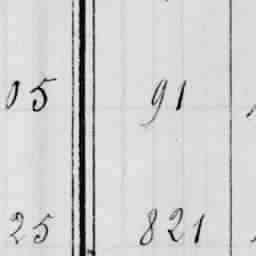 05 91
25 821